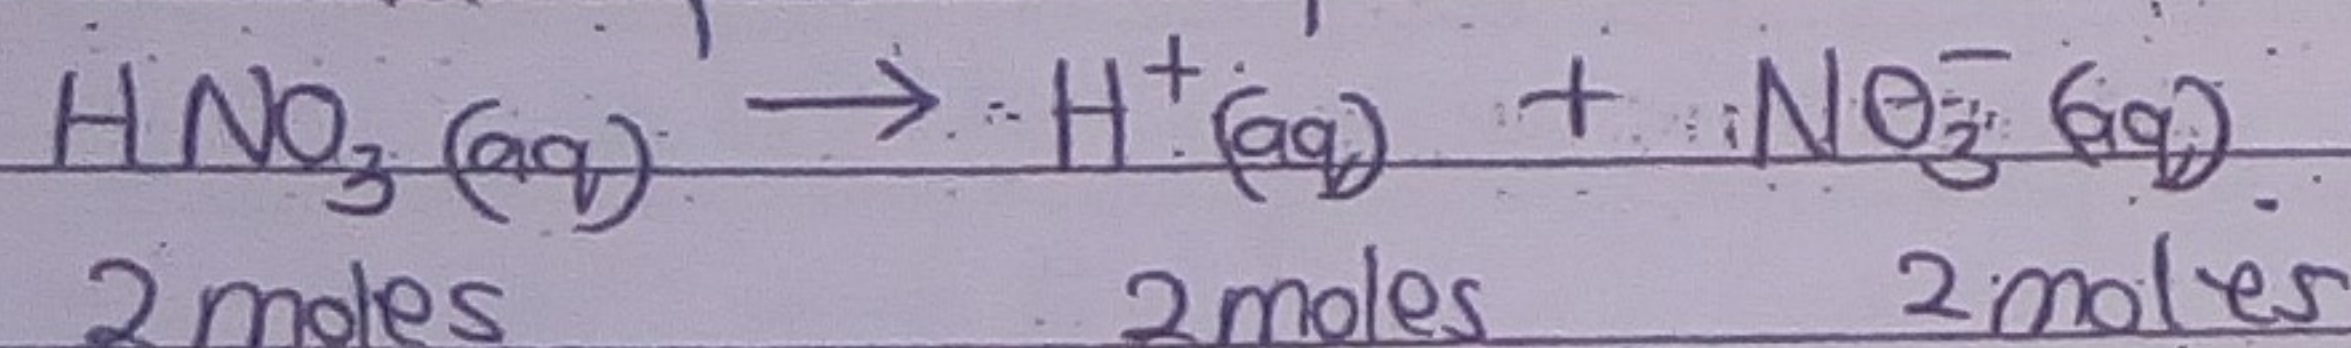 HNO₃ (aq) → H⁺ (aq) + NO₃⁻ (aq)
2 moles 2 moles 2 moles